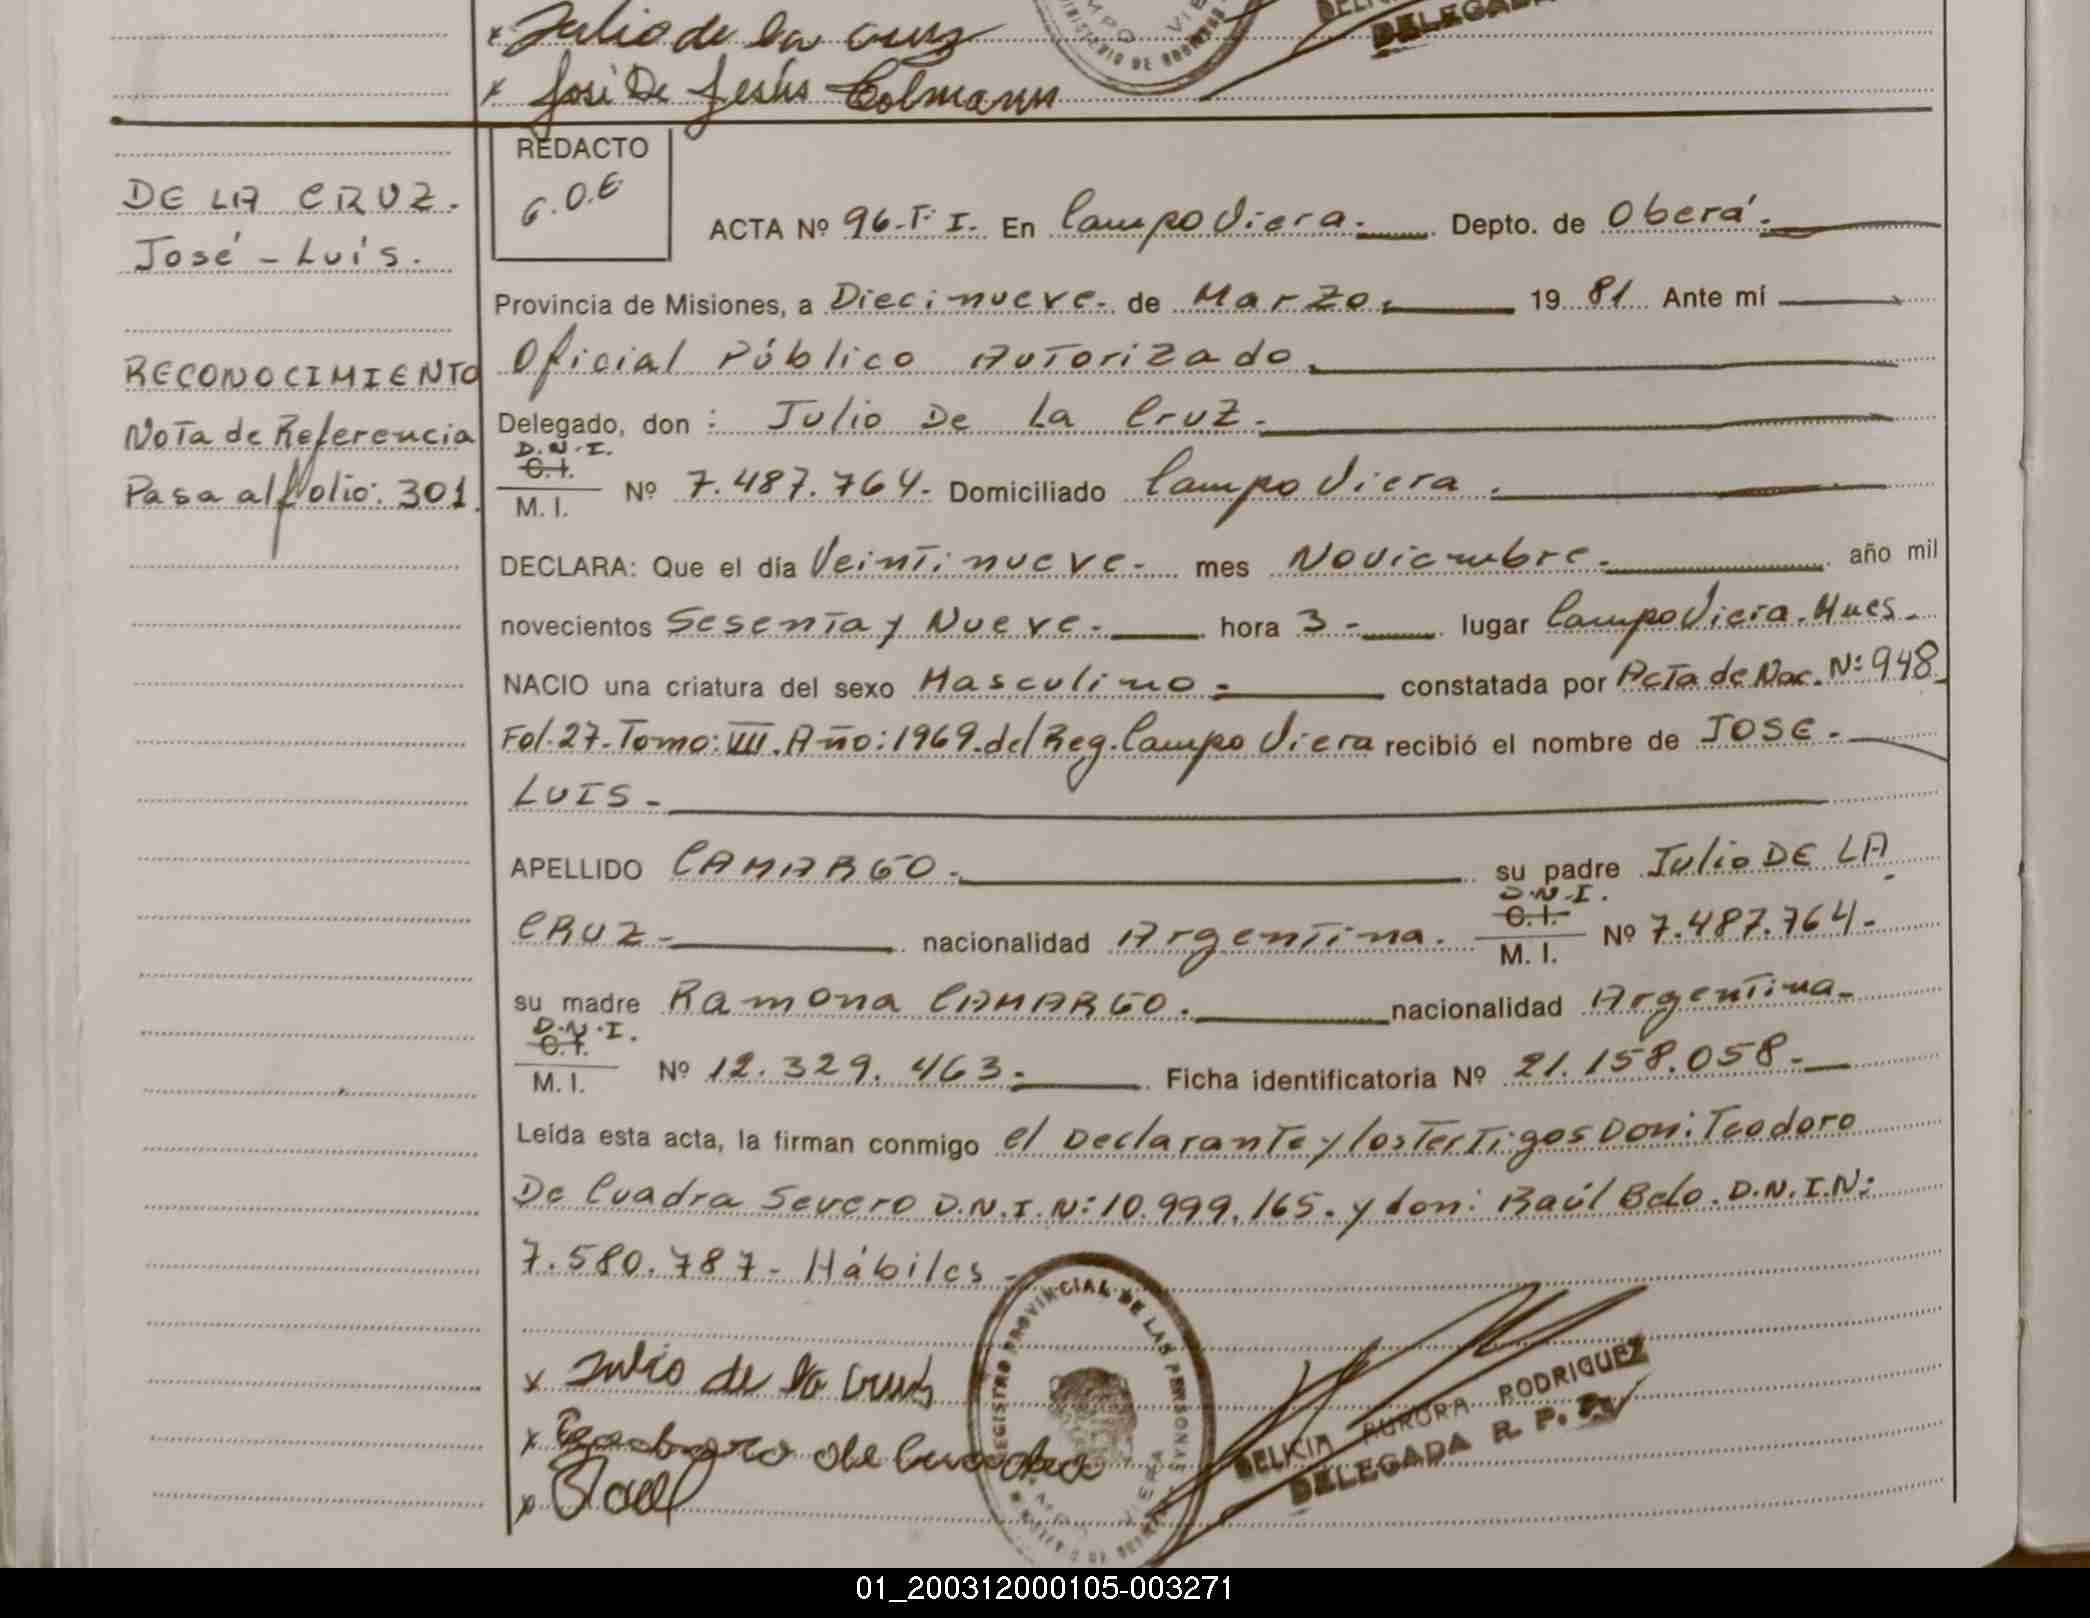 Julio de la cruz
José De Jesús Colmann
REDACTO
G.O.E
DE LA CRUZ.
José - Luís.
RECONOCIMIENTO
Nota de Referencia
Pasa al folio: 301.
ACTA Nº 96-Tº I. En Campo Viera. Depto. de Oberá.
Provincia de Misiones, a Diecinueve. de Marzo. 19 81 Ante mí
Oficial Público Autorizado.
Delegado, don : Julio De La Cruz.
D.N.I.
C.I.
M. I. Nº 7.487.764. Domiciliado Campo Viera.
DECLARA: Que el día Veintinueve. mes Noviembre. año mil
novecientos Sesenta y Nueve. hora 3 - lugar Campo Viera. Mnes.
NACIO una criatura del sexo Masculino. constatada por Acta de Nac. Nº 948.
Fol. 27. Tomo: III. Año: 1969. del Reg. Campo Viera recibió el nombre de JOSE.
LUIS.
APELLIDO CAMARGO. su padre Julio DE LA
CRUZ. nacionalidad Argentina. D.N.I. C.I. M. I. Nº 7.487.764.
su madre Ramona CAMARGO. nacionalidad Argentina.
D.N.I.
C.I.
M. I. Nº 12.329.463. Ficha identificatoria Nº 21.158.058.
Leída esta acta, la firman conmigo el Declarante y los Testigos Don: Teodoro
De Cuadra Severo D.N.I.Nº: 10.999.165. y don: Raúl Belo. D.N.I.Nº:
7.580.787. Hábiles.
Julio de la Cruz
REGISTRO PROVINCIAL DE LAS PERSONAS
DELICIA AURORA RODRIGUEZ
DELEGADA R. P. P.
01_200312000105-003271